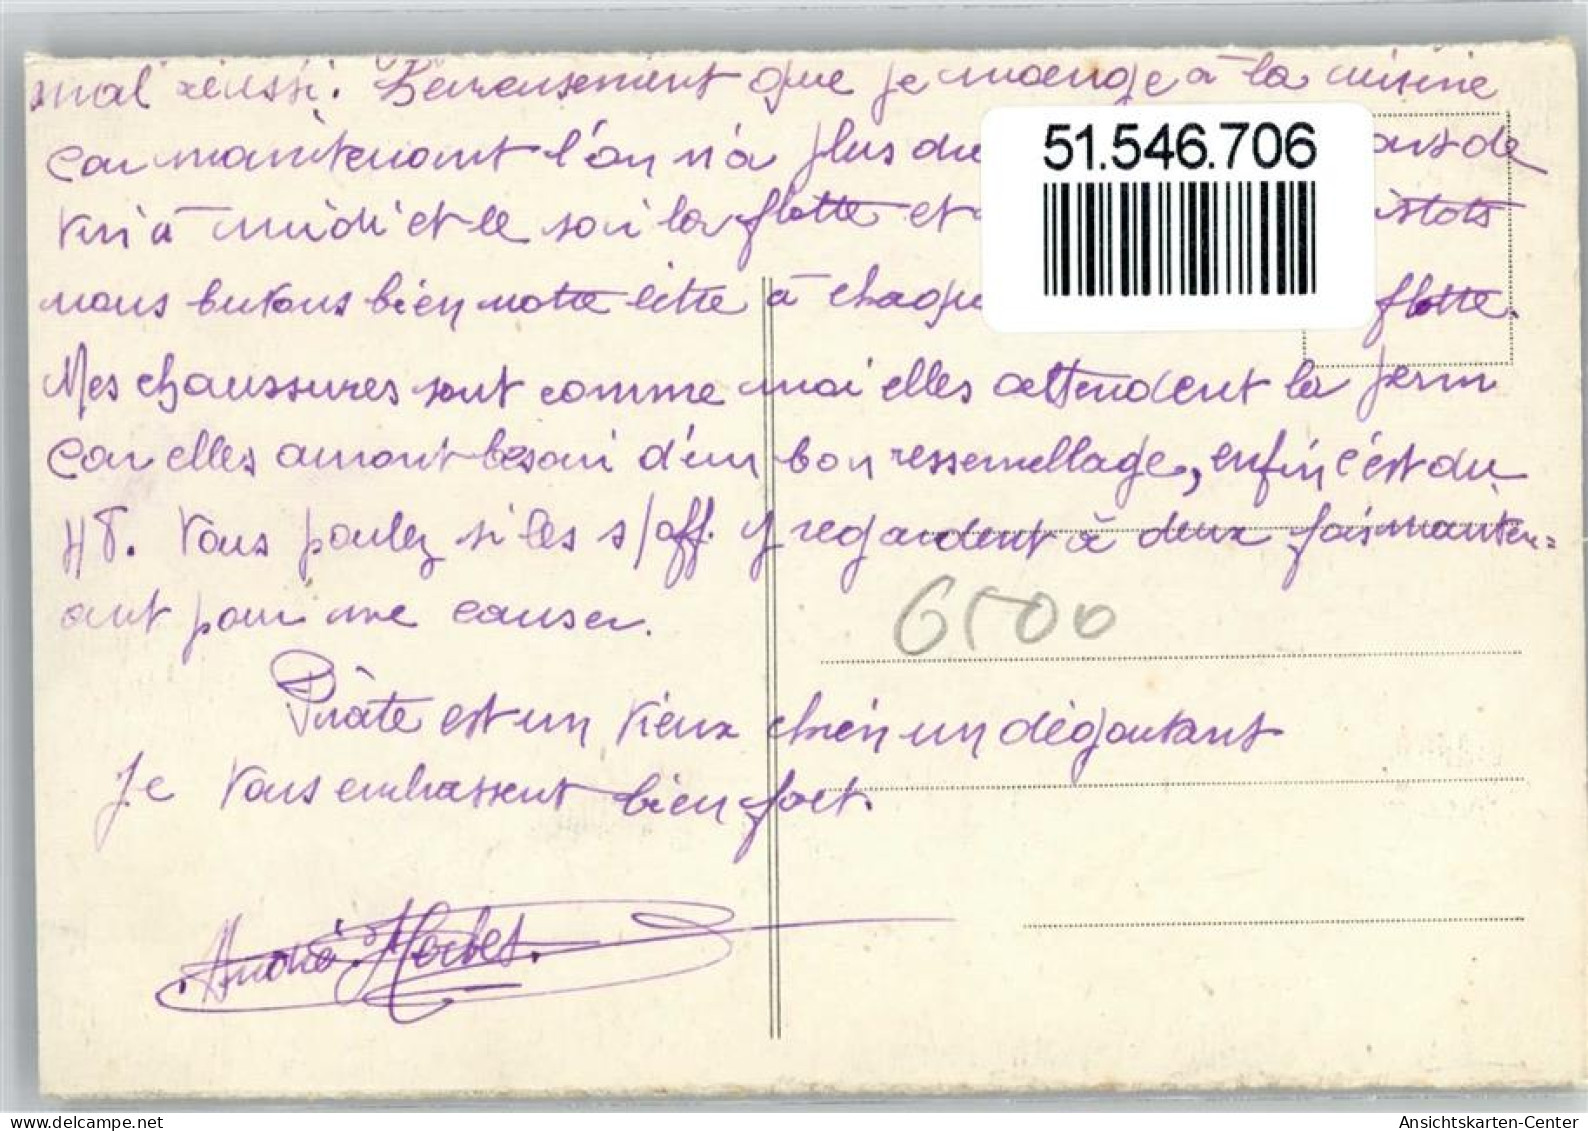 mal réussi. Heureusement que je mange à la cuisine
car maintenant l'on n'a plus du
51.546.706
de
vin à midi et le soir la flotte et
istots
nous buvons bien notre litre à chaque
flotte.
Mes chaussures sont comme moi elles attendent la perm
car elles auront besoin d'un bon ressemellage, enfin c'est du
HT. Vous parlez si les s/off. y regardent à deux fois mainten=
ant pour me causer.
6500
Pirate est un vieux chien un dégoutant
Je vous embrassent bien fort.
André Horbet.
delcampe.net
Ansichtskarten-Center